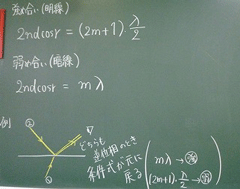 強め合い(明線)
2ndcosr = (2m+1)・λ/2
弱め合い(暗線)
2ndcosr = mλ
例
①
②
どちらも
逆位相のとき
条件式が元に
戻る
mλ → 強
(2m+1)・λ/2 → 弱